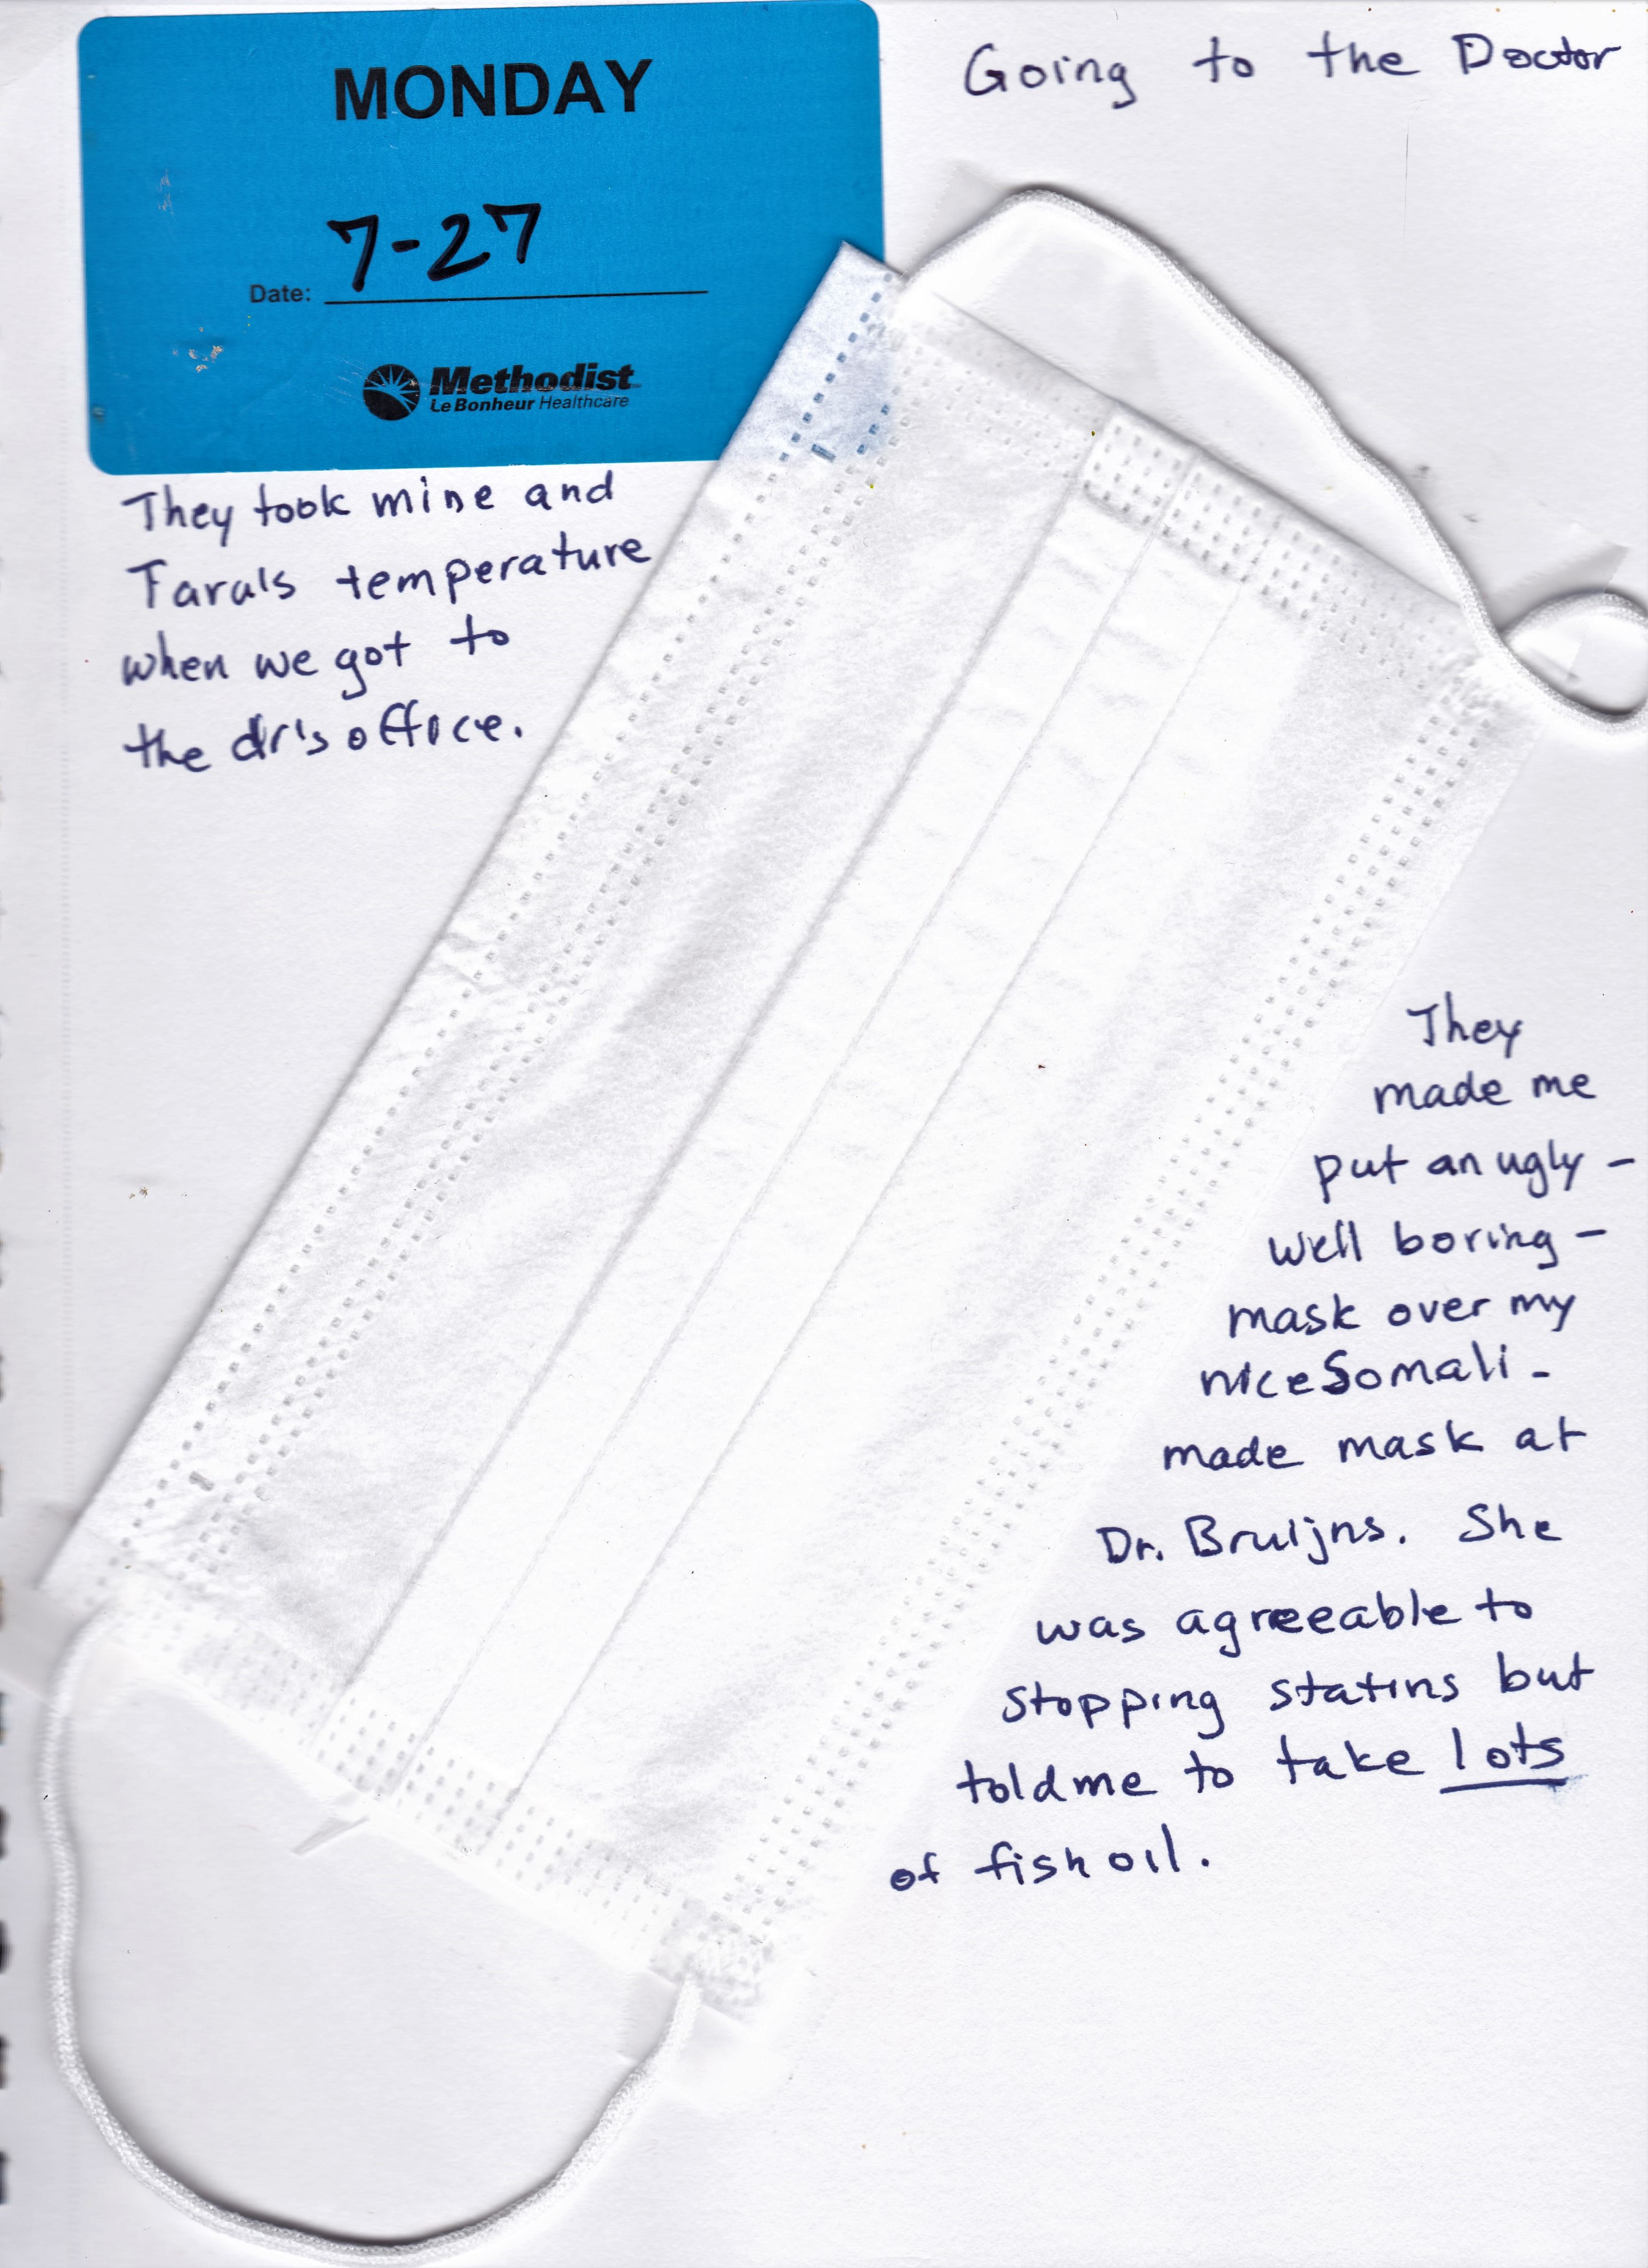 Going to the Doctor
MONDAY
7-27
Date:
Methodist
Le Bonheur Healthcare
They took mine and
Tara's temperature
when we got to
the dr's office.
They
made me
put an ugly -
well boring -
mask over my
nice Somali -
made mask at
Dr. Bruijns. She
was agreeable to
stopping statins but
told me to take lots
of fish oil.